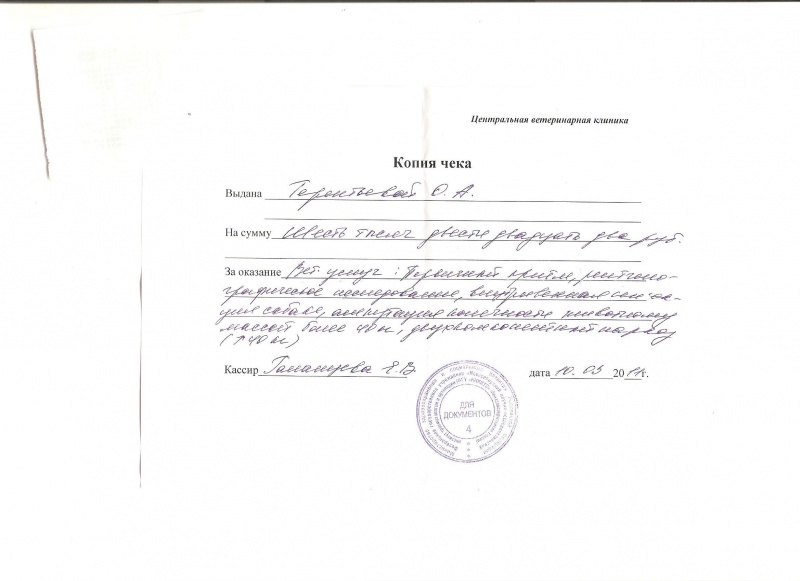 Центральная ветеринарная клиника
Копия чека
Выдана Терентьевой О. А.
На сумму Шесть тысяч двести двадцать два руб.
За оказание Вет. услуг: Первичный приём, рентгено-
графическое исследование, внутривенная инъек-
ция собаке, ампутация конечности животному
массой более 40 кг, двухкомпонентный наркоз
(> 40 кг)
Кассир Е.В.
дата 10.03 2011г.
ДЛЯ
ДОКУМЕНТОВ
4